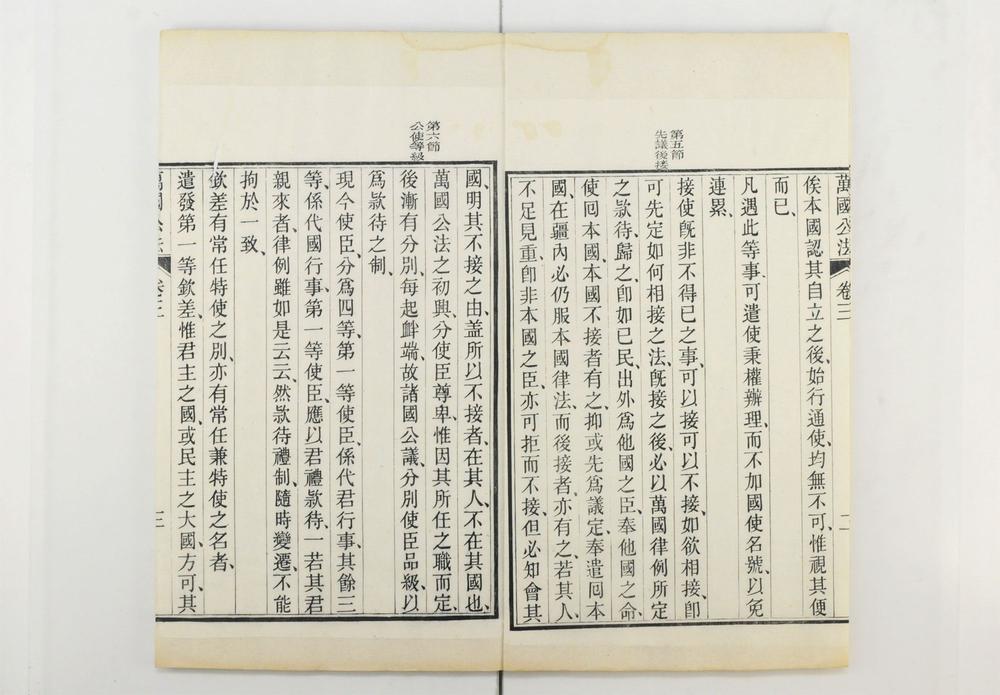 萬國公法 卷三 二
俟本國認其自立之後、始行通使、均無不可、惟視其便
而已、
凡遇此等事、可遣使秉權辦理、而不加國使名號、以免
連累、
第五節
先議後接
接使旣非不得已之事、可以接可以不接、如欲相接、卽
可先定如何相接之法、旣接之後、必以萬國律例所定
之欵待、歸之、卽如已民出外爲他國之臣、奉他國之命、
使囘本國、本國不接者有之、抑或先爲議定、奉遣囘本
國、在疆內必仍服本國律法、而後接者、亦有之、若其人、
不足見重、卽非本國之臣、亦可拒而不接、但必知會其
國、明其不接之由、盖所以不接者、在其人、不在其國也、
第六節
公使等級
萬國公法之初興、分使臣尊卑、惟因其所任之職而定、
後漸有分別、每起衅端、故諸國公議、分別使臣品級、以
爲欵待之制、
現今使臣、分爲四等、第一等使臣、係代君行事、其餘三
等、係代國行事、第一等使臣、應以君禮欵待、一若其君
親來者、律例雖如是云云、然欵待禮制、隨時變遷、不能
拘於一致、
欽差有常任特使之別、亦有常任兼特使之名者、
遣發第一等欽差、惟君主之國、或民主之大國、方可、其
萬國公法 卷三 三